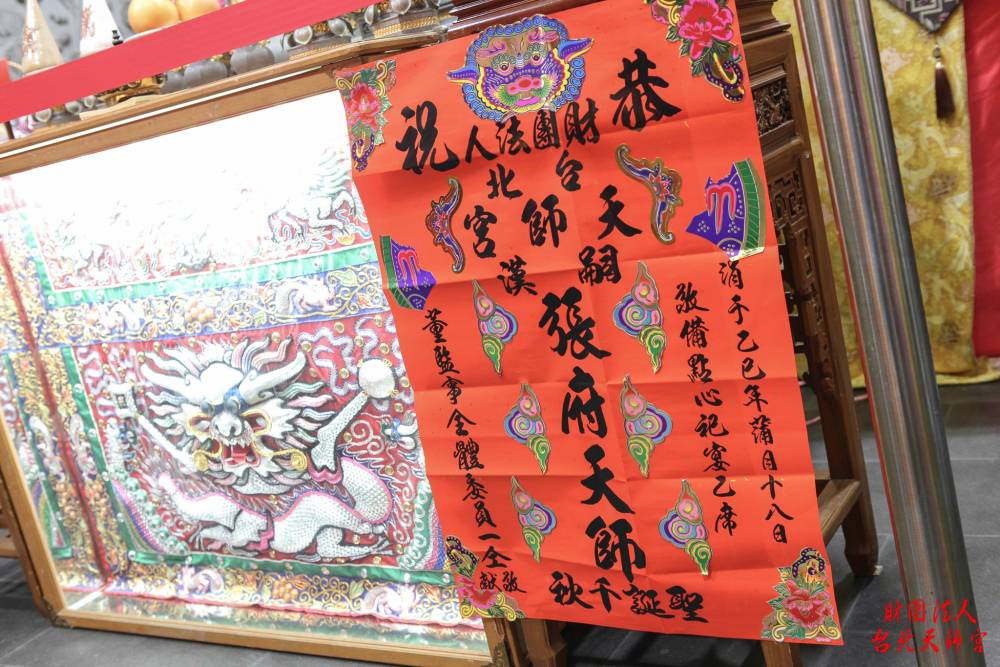 恭祝
財團法人
台北
天師宮
嗣漢
張府天師
聖誕千秋
涓于乙巳年蒲月十八日
敬備點心祀宴乙席
董監事全體委員一仝敬献
財團法人
台北天師宮